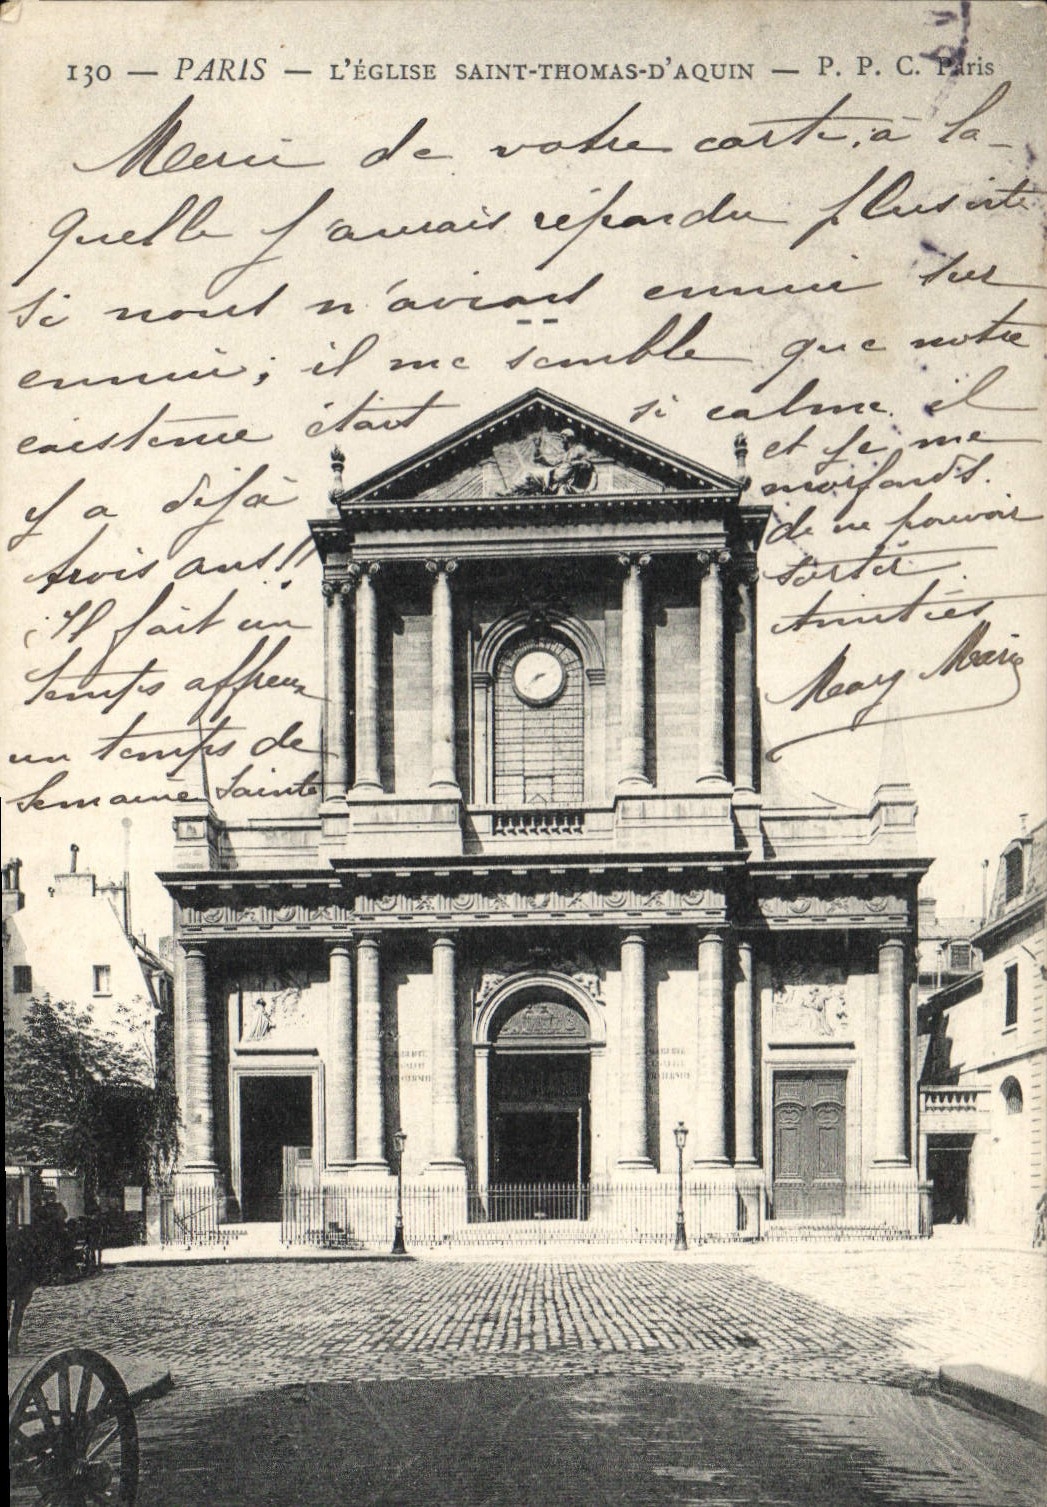 130 — PARIS — L'ÉGLISE SAINT-THOMAS-D'AQUIN — P. P. C. Paris
Merci de votre carte, à la-
quelle j'aurais répondu plus vite
si nous n'avions ennui sur
ennui; il me semble que notre
existence était si calme. il
y a déjà
trois ans!!
Il fait un
temps affreux
un temps de
Semaine Sainte
et je me
morfonds.
de ne pouvoir
sortir.
Amitiés
Mary Marie
LIBERTÉ
ÉGALITÉ
FRATERNITÉ
LIBERTÉ
ÉGALITÉ
FRATERNITÉ